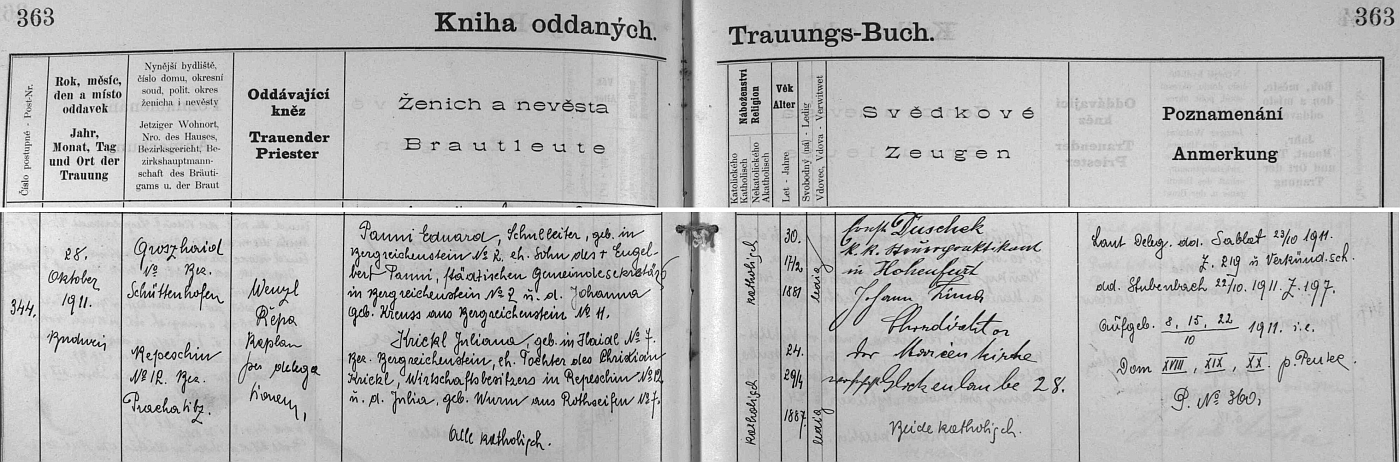 363
Kniha oddaných.
Trauungs-Buch.
363
Číslo postupné - Post-Nr.
Rok, měsíc,
den a místo
oddavek
Jahr,
Monat, Tag
und Ort der
Trauung
Nynější bydliště,
číslo domu, okresní
soud, polit. okres
ženicha i nevěsty
Jetziger Wohnort,
Nro. des Hauses,
Bezirksgericht, Be-
zirkshauptmann-
schaft des Bräuti-
gams u. der Braut
Oddávající
kněz
Trauender
Priester
Ženich a nevěsta
Brautleute
Náboženství
Religion
Katolického
Katholisch
Nekatolického
Akatholisch
Věk
Alter
Let - Jahre
Svobodný (ná) - Ledig
Vdovec, Vdova - Verwitwet
Svědkové
Zeugen
Poznamenání
Anmerkung
344.
28.
Oktober
1911.
Budweis
Groszhaid
№ Bez.
Schüttenhofen
Repeschin
№ 12. Bez.
Prachatitz.
Wenzl
Řepa
Kaplan
per delega
tionem,
Panni Eduard, Schulleiter, geb. in
Bergreichenstein № 2. eh. Sohn des † Engel-
bert Panni, städtischen Gemeindesekretärs
in Bergreichenstein № 2 u. d. Johanna
geb. Kreuss aus Bergreichenstein № 11.
Krickl Juliana, geb. in Haidl № 7.
Bez. Bergreichenstein, eh. Tochter des Christian
Krickl, Wirtschaftsbesitzers in Repeschin № 12
u. d. Julia, geb. Wurm aus Rothseifen № 7.
Alle katholisch.
katholisch
30.
17/2
1881
ledig
katholisch
24.
29/4
1887.
ledig
Duschek
k. k. Steuerpraktikant
in Hohenfurt
Johann Zima
Chordirektor
der Marienkirche
Glockenlaube 28.
Beide katholisch.
Laut Deleg. dd. Sablat 23/10 1911.
Z. 219 u Verkündsch.
dd. Stubenbach 22/10. 1911. Z. 197.
Aufgeb. 8, 15, 22/10 1911. i.e.
Dom XVIII, XIX, XX. p. Pentec.
P. № 360,